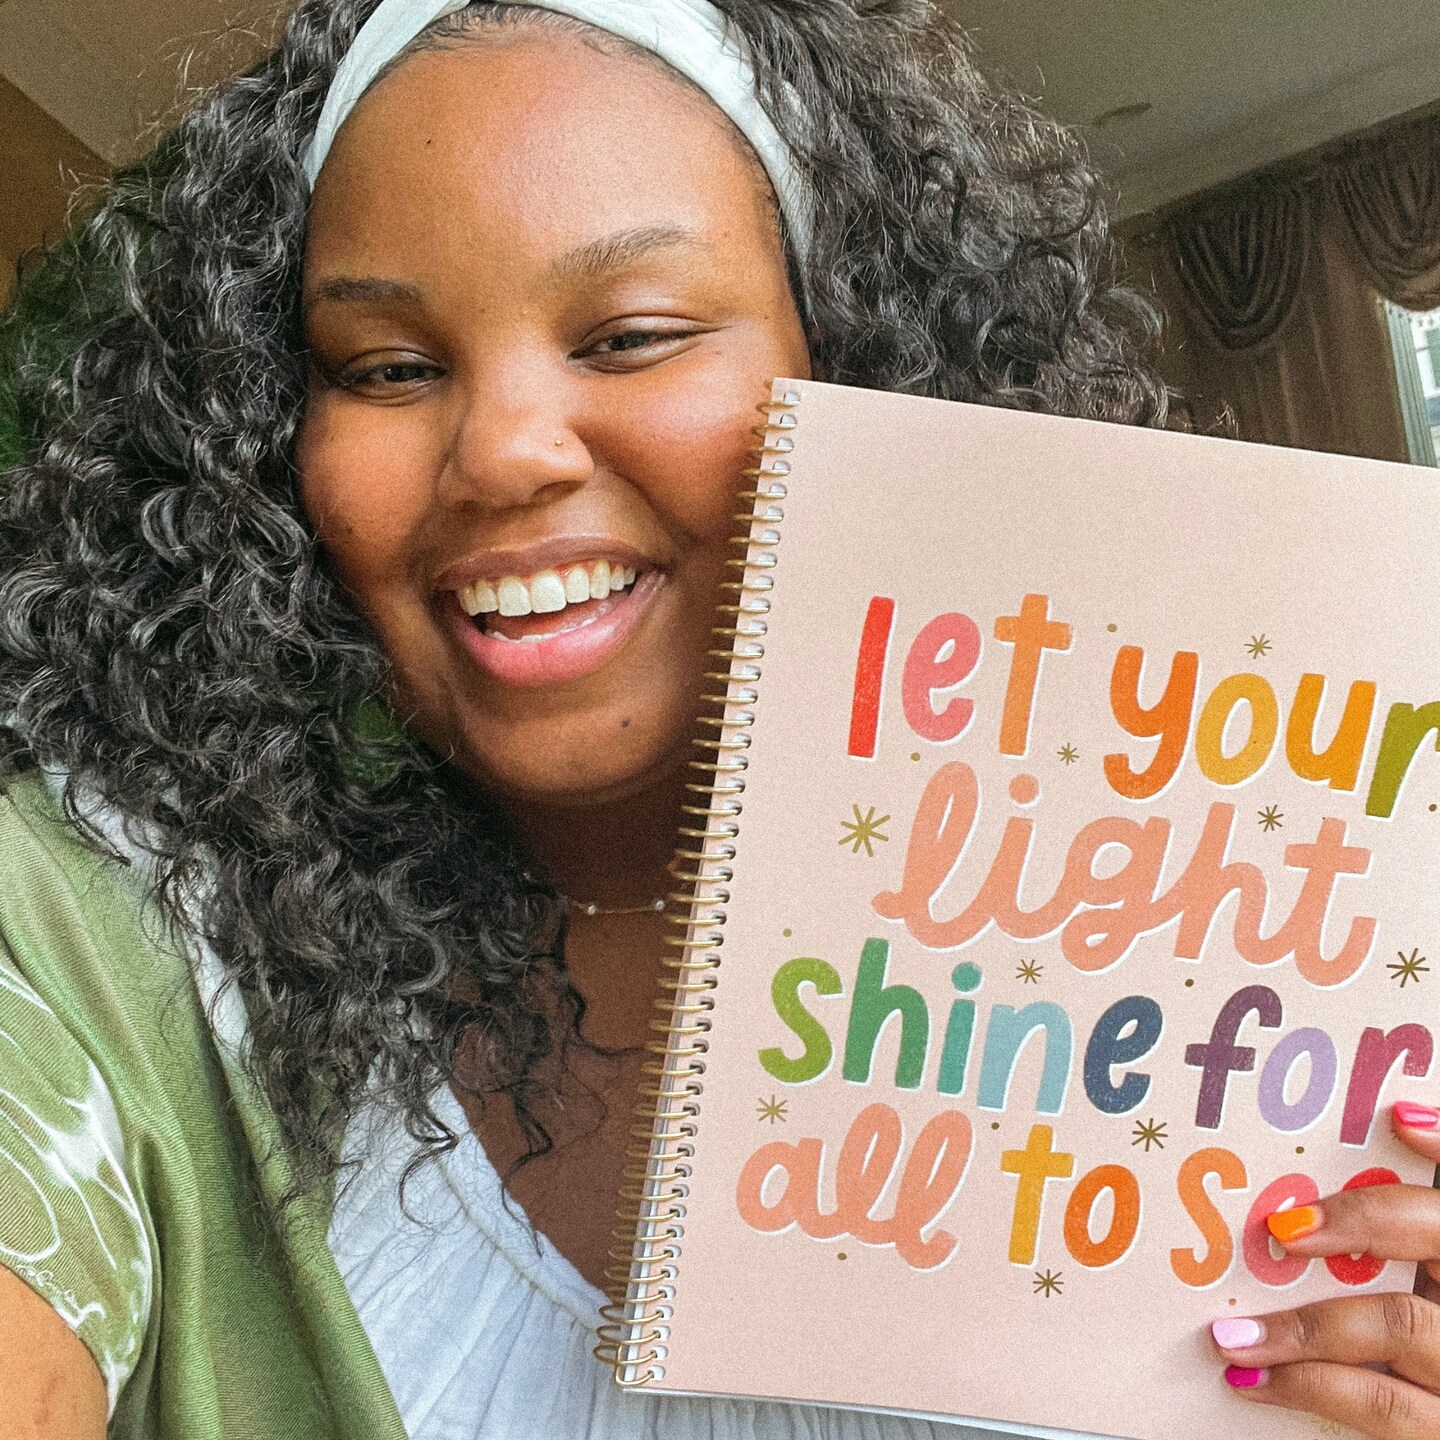 let your
light
shine for
all to see